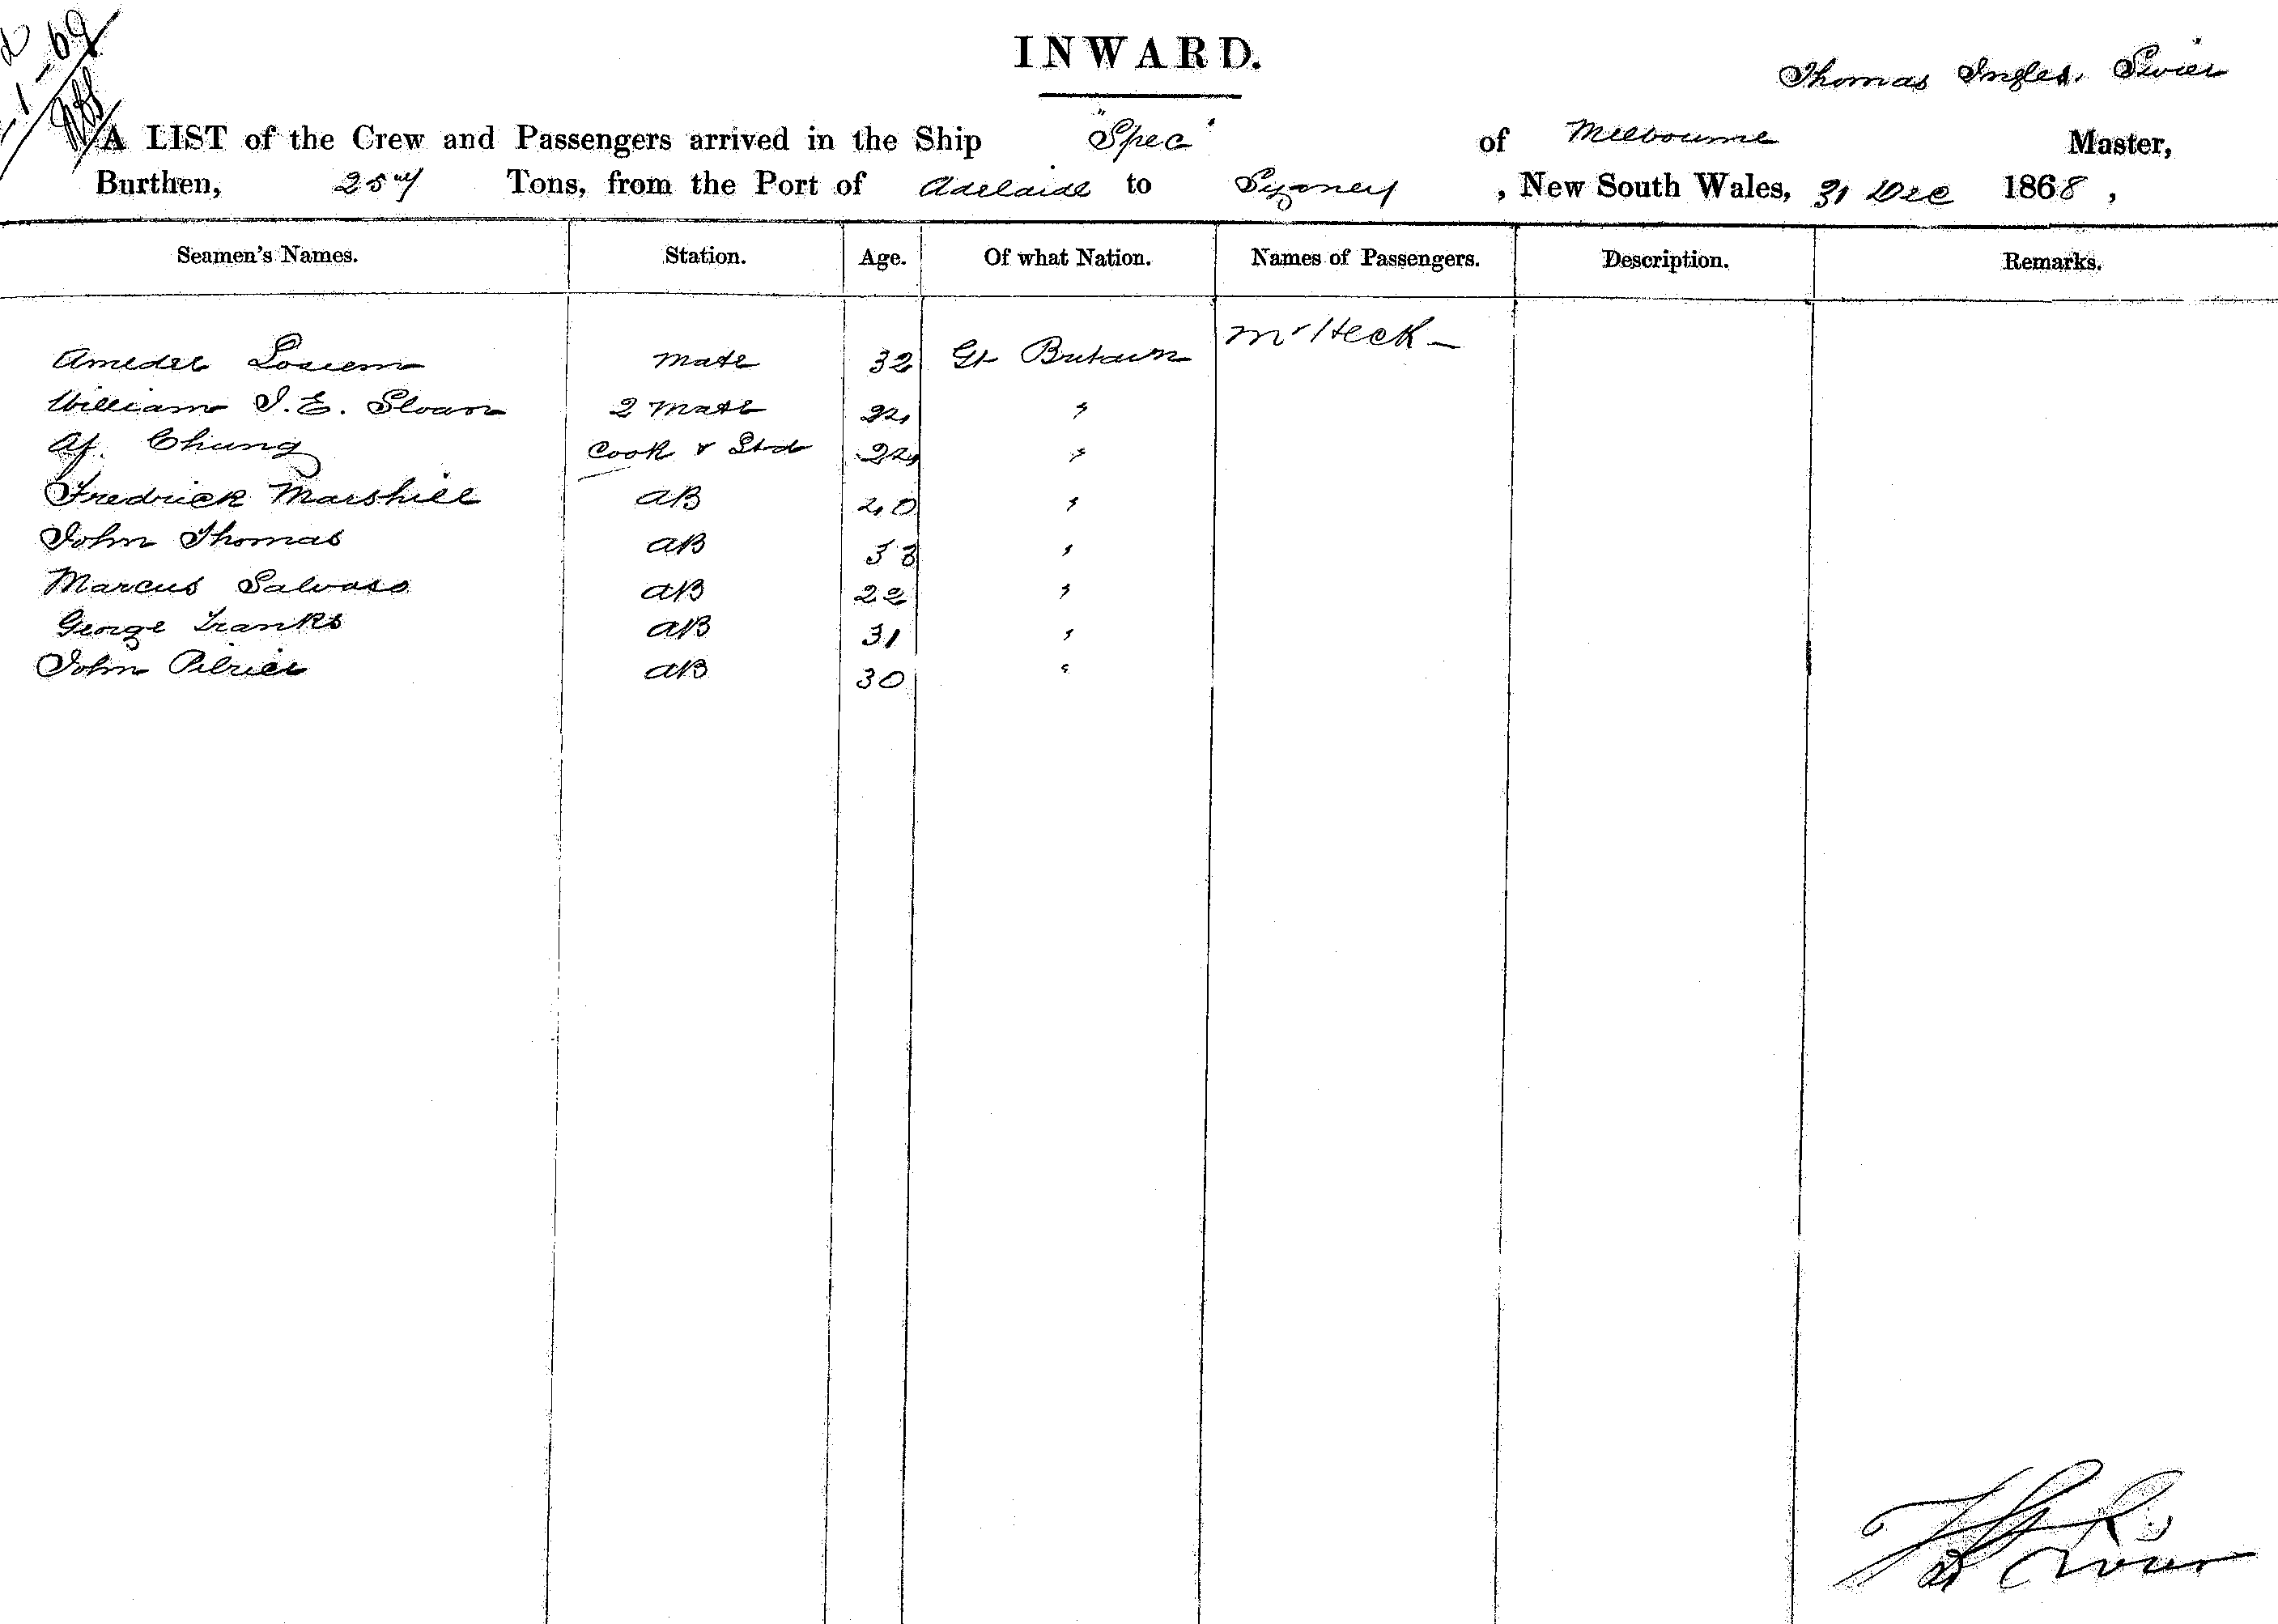 -1-69
INWARD.
Thomas Ingles. Sivier
A LIST of the Crew and Passengers arrived in the Ship "Spec" of Melbourne Master,
Burthen, Tons, from the Port of Adelaide to Sydney , New South Wales, 31 Dec 1868 ,
Seamen's Names. Station. Age. Of what Nation. Names of Passengers. Description. Remarks.
Mr Heck -
Amedee mate 32 Gt Britain
William J. E. Sloan 2 mate 24 "
Af. Chung Cook & Strd 24 "
Fredrick Marshill AB 20 "
John Thomas AB 33 "
Marcus Salvaso AB 22 "
George Franks AB 31 "
John AB 30 "